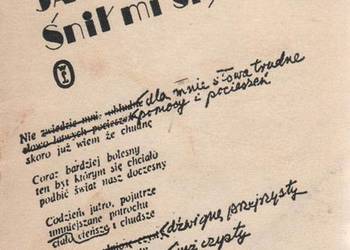 Śnił mi
Nie zwiedzie mnie dla mnie słowa trudne
słowo łatwych pomocy i pocieszeń
skoro już wiem że chudnę
Coraz bardziej bolesny
ten byt którym się chciało
podbić świat nasz doczesny
Codzień, jutro, pojutrze
umniejszane potrochu
ciało cieńsze i chudsze
dźwignę przejrzysty
czysty